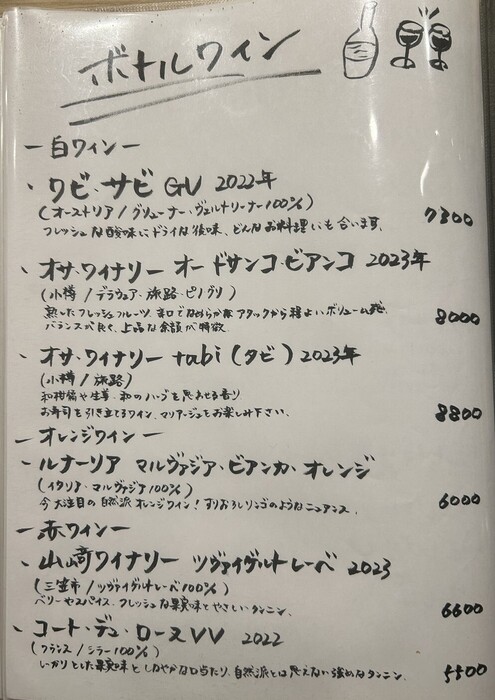 ボトルワイン
ー白ワインー
・ワビ・サビ GV 2022年
(オーストリア/グリューナー・ヴェルトリーナー100%)
フレッシュな酸味にドライな後味、どんなお料理にも合います。
7300
・オサ・ワイナリー オードサンコ・ビアンコ 2023年
(小樽/デラウェア・旅路・ピノグリ)
熟したフレッシュフルーツ。辛口でなめらかなアタックから程よいボリューム感
バランスが良く、上品な余韻が特徴。
8000
・オサ・ワイナリー tabi(タビ)2023年
(小樽/旅路)
和柑橘や生姜、和のハーブを思わせる香り
お寿司を引き立てるワイン、マリアージュをお楽しみ下さい。
8800
ーオレンジワインー
・ルナーリア マルヴァジア・ビアンカ・オレンジ
(イタリア・マルヴァジア100%)
今大注目の自然派オレンジワイン!すりおろしリンゴのようなニュアンス。
6000
ー赤ワインー
・山﨑ワイナリー ツヴァイゲルトレーベ 2023
(三笠市/ツヴァイゲルトレーベ100%)
ベリーやスパイス、フレッシュな果実味とやさしいタンニン。
6600
・コート・デュ・ローヌVV 2022
(フランス/シラー100%)
しっかりとした果実味としなやかな口当たり、自然派とは思えない強めなタンニン。
5500